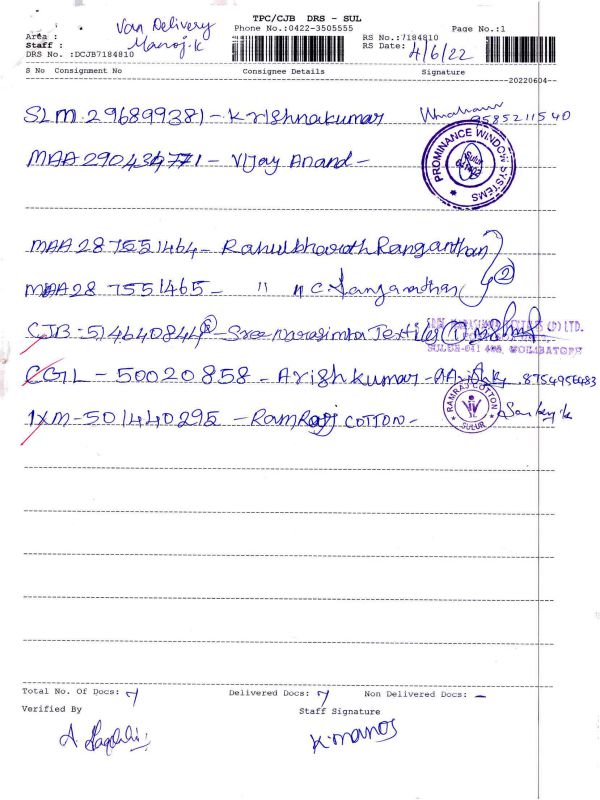 TPC/CJB DRS - SUL
Van Delivery
Phone No.:0422-3505555
Page No.:1
Area :
Manoj.K
RS No.:7184810
Staff :
RS Date: 4/6/22
DRS No. :DCJB7184810
S No Consignment No Consignee Details Signature
20220604
SLM 296899381 - Krishnakumar
9585211540
MAA 290434771 - Vijay Anand -
PROMINANCE WINDOW SYSTEMS
MAA 287551464 - Rahulbharath Ranganthan
MAA 28 7551465 - " " C. 2
CJB - 514640844 Sree Narasimha Textiles (P)
(P) LTD.
SULUR-641 COIMBATORE
CGL - 50020858 - Arishkumar - 8754956483
IXM - 501440295 - Ramraj COTTON -
RAMRAJ COTTON SULUR
Total No. Of Docs: 7 Delivered Docs: 7 Non Delivered Docs: -
Verified By Staff Signature
K. Manoj